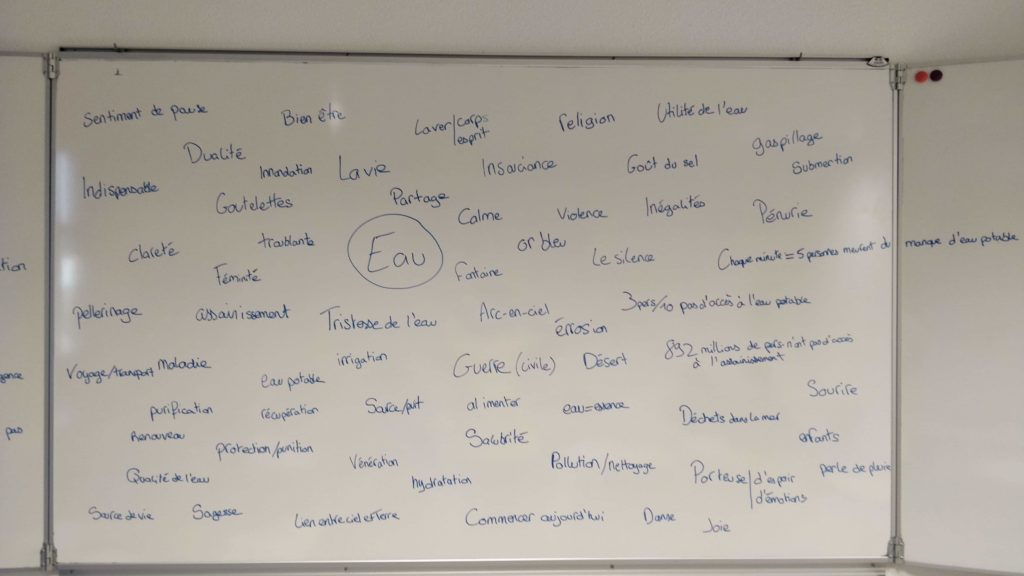 Sentiment de pause
Bien être
Laver/corps
esprit
religion
Utilité de l'eau
Dualité
Innondation
La vie
Insouciance
Goût du sel
gaspillage
Submertion
Indispensable
Goutelettes
Partage
Calme
Violence
Inégalités
Pénurie
Clareté
troublante
Eau
or bleu
Le silence
Chaque minute = 5 personnes meurent du manque d'eau potable
tion
Féminité
Fontaine
pellerinage
assainissement
Tristesse de l'eau
Arc-en-ciel
érrosion
3pers/10 pas d'accès à l'eau potable
Voyage/transport
Maladie
irrigation
Guerre (civile)
Désert
892 millions de pers. n'ont pas d'accès
à l'assainissement
eau potable
Sourire
purification
récupération
Source/puit
alimenter
eau=essence
Déchets dans la mer
pas
Renouveau
protection/punition
Salubrité
enfants
Qualité de l'eau
Vénération
hydratation
Pollution/nettoyage
Porteuse
d'espoir
d'émotions
perle de pluie
Source de vie
Sagesse
Lien entre ciel et Terre
Commencer aujourd'hui
Danse
Joie